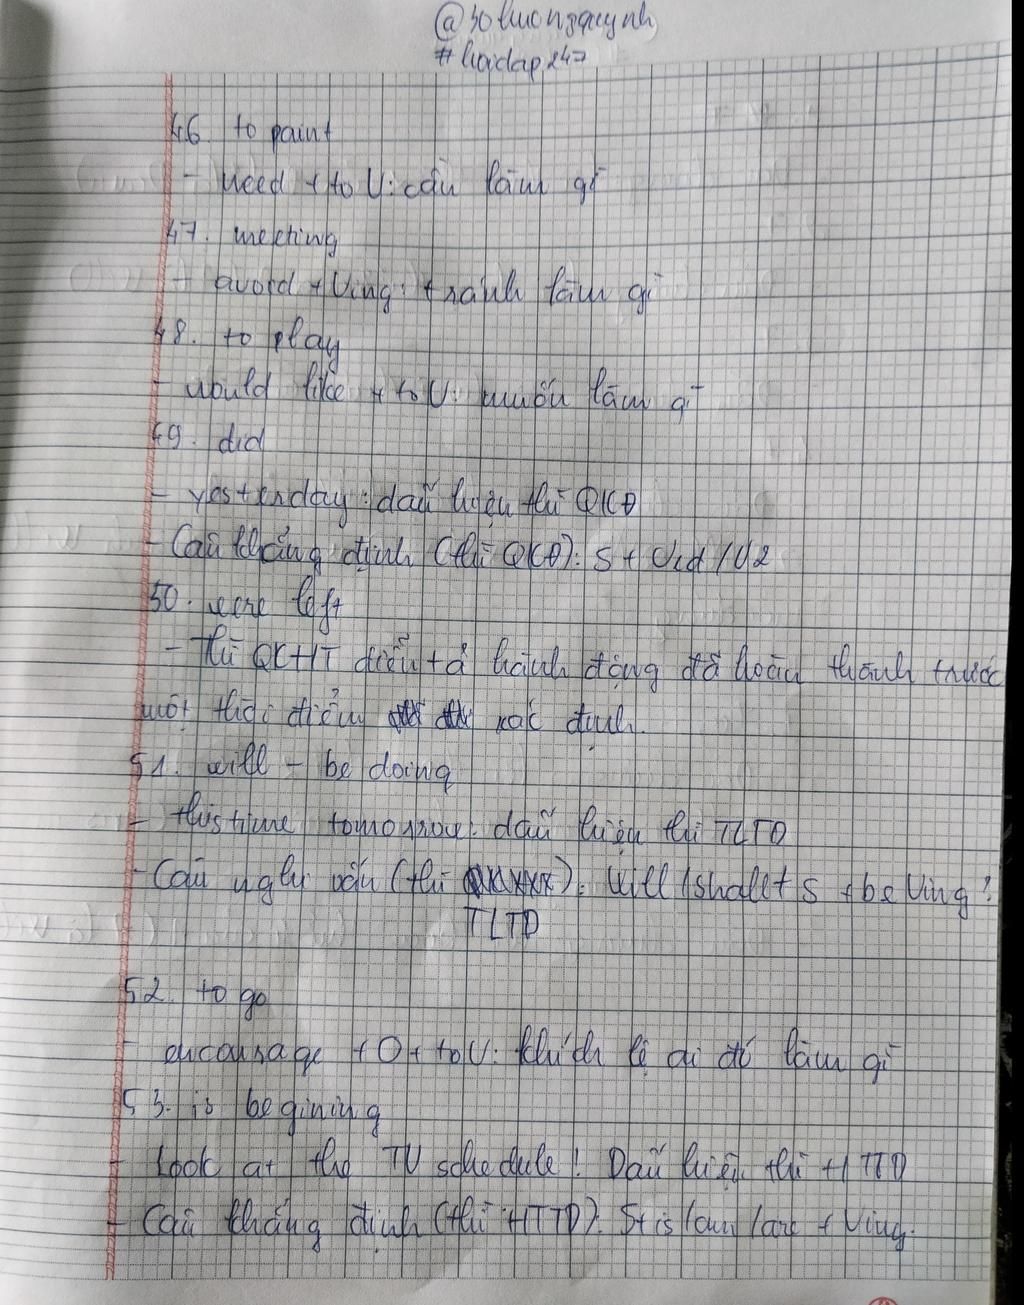 @sotuongquynh
#hoidap247
46. to paint
- need + to V: cần làm gì
47. meeting
+ avoid + Ving: tránh làm gì
48. to play
- would like + to V: muốn làm gì
49. did
- yesterday: dấu hiệu thì QKĐ
- Câu khẳng định (thì QKĐ): S + Ved / V2
50. were left
- Thì QKHT diễn tả hành động đã hoàn thành trước
một thời điểm xác định.
51. will - be doing
- this time tomorrow: dấu hiệu thì TLTD
- Câu nghi vấn (thì ): Will / shall + S + be Ving?
TLTD
52. to go
- encourage + O + to V: khích lệ ai đó làm gì
53. is begining
- Look at the TV schedule! Dấu hiệu thì HTTD
- Câu khẳng định (thì HTTD): S + is / am / are + Ving.